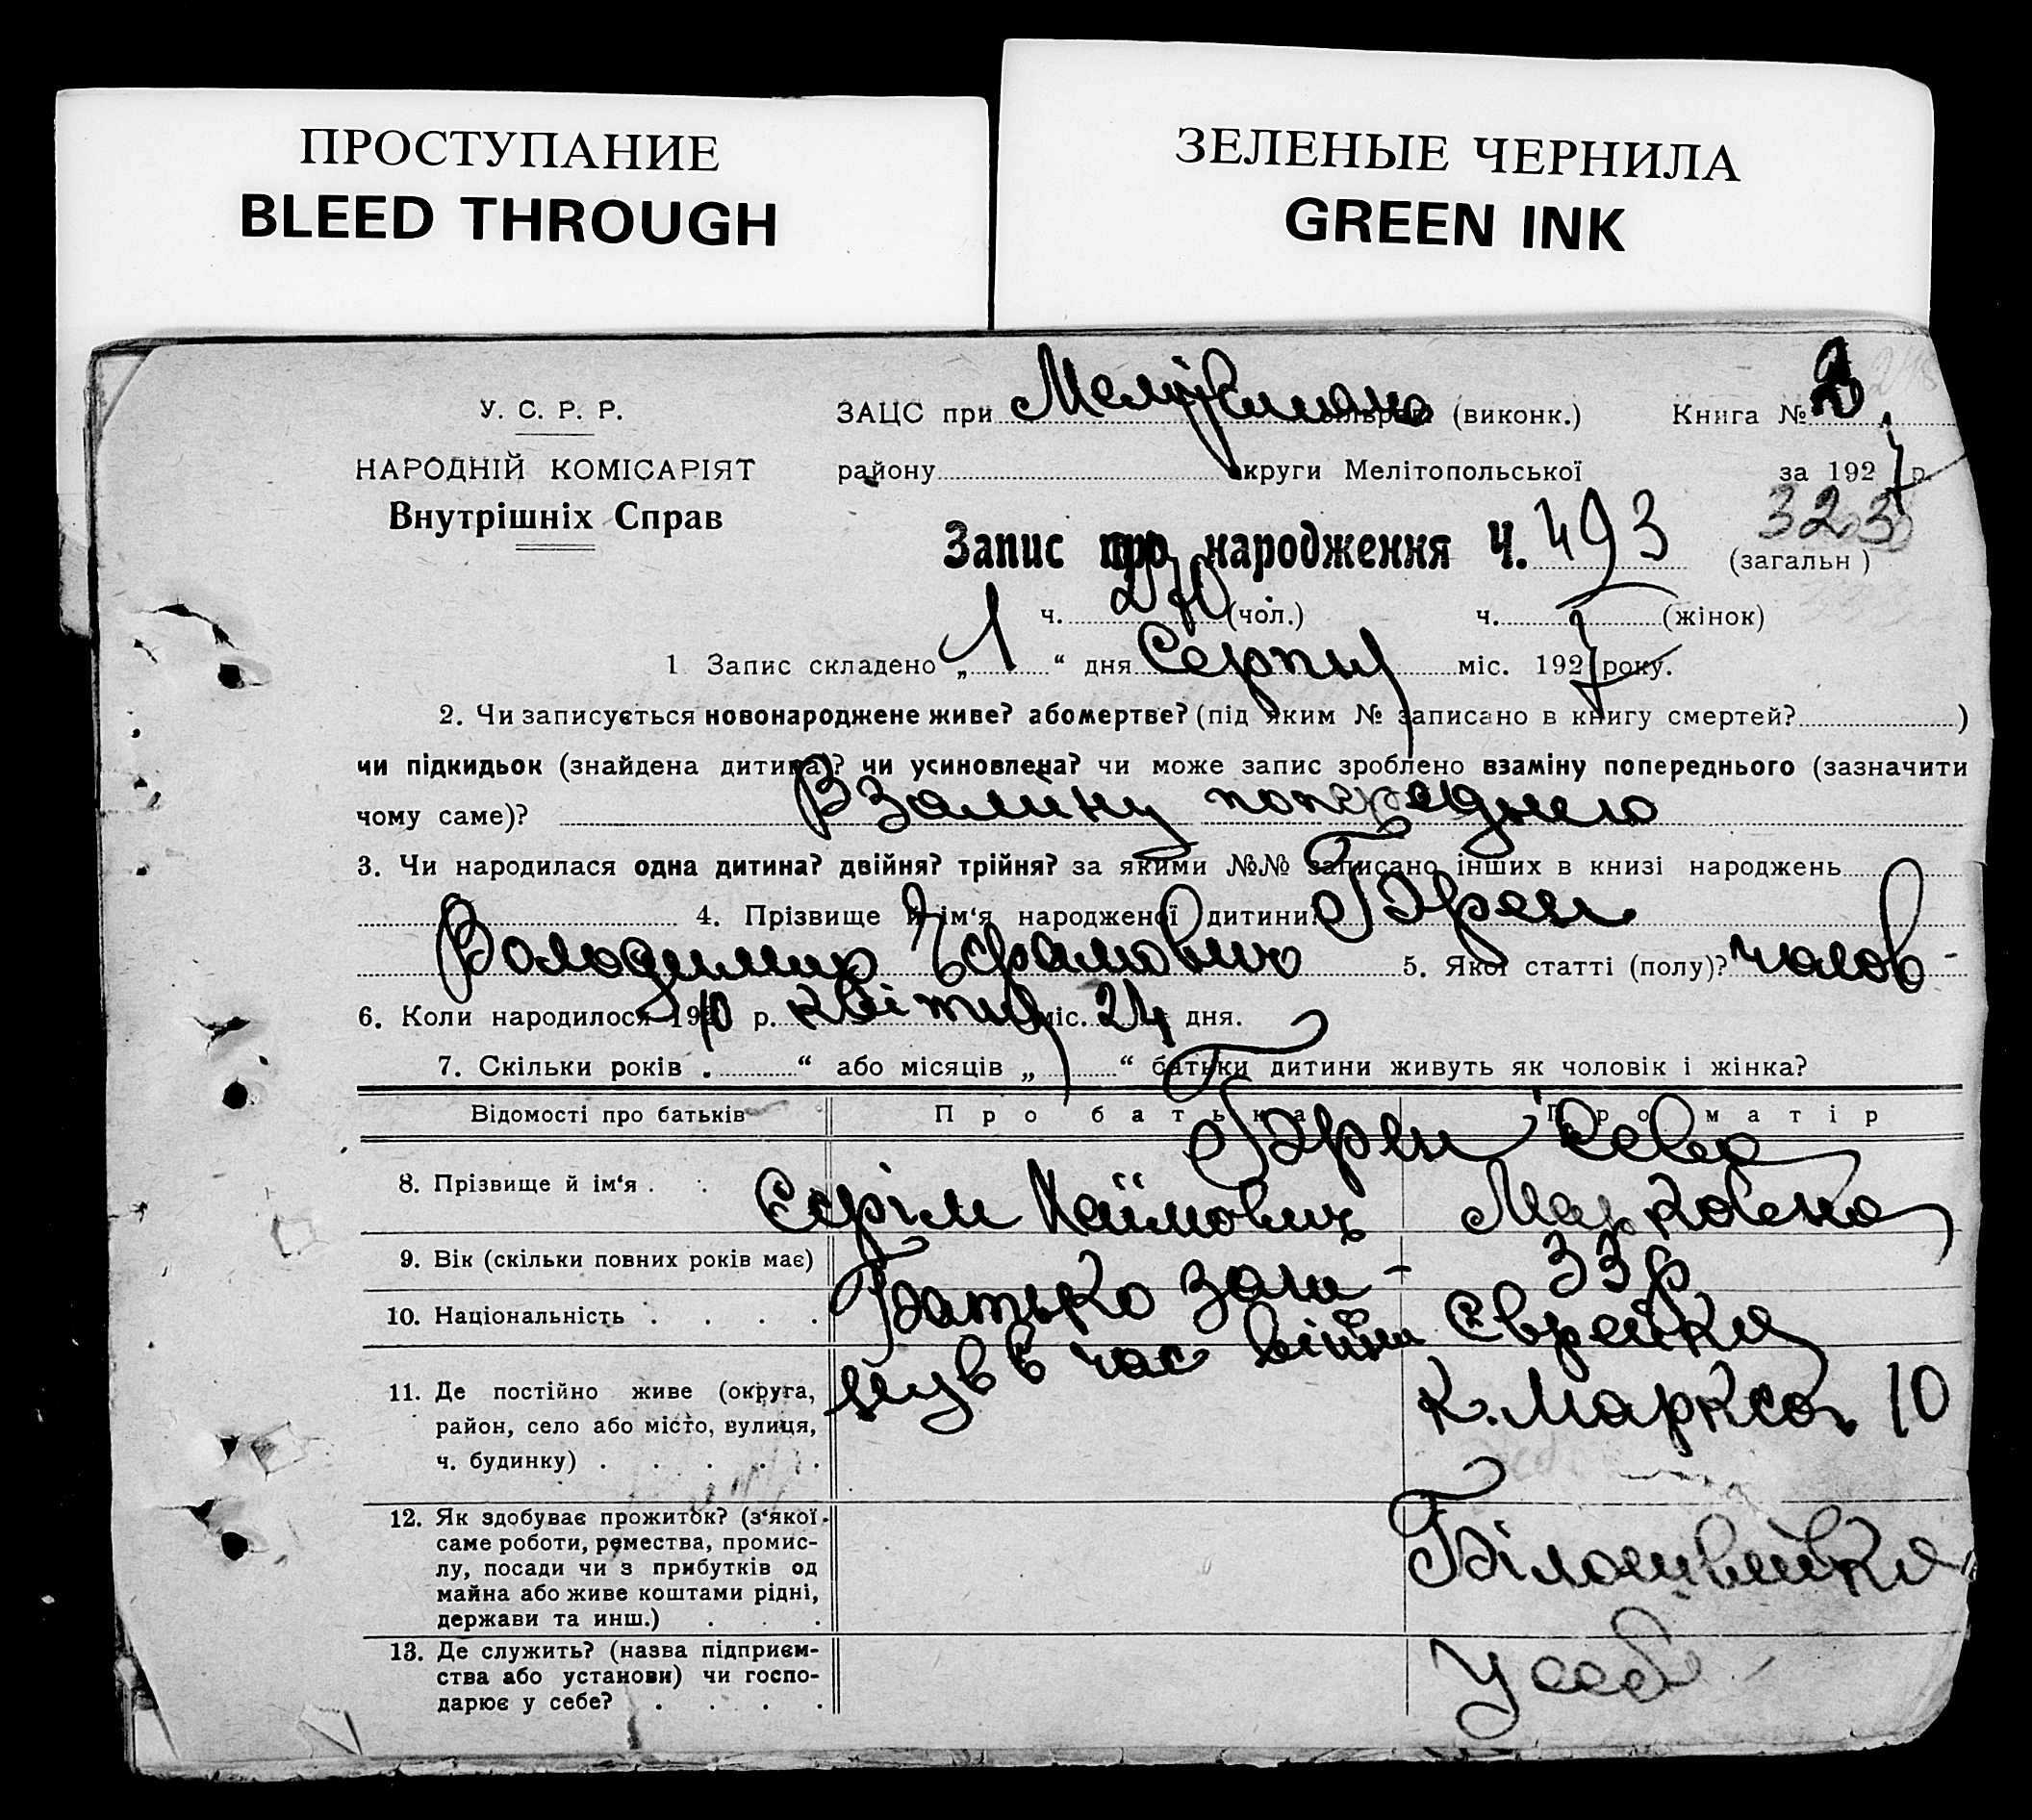 ПРОСТУПАНИЕ
BLEED THROUGH
ЗЕЛЕНЫЕ ЧЕРНИЛА
GREEN INK
У. С. Р. Р.
НАРОДНІЙ КОМІСАРІЯТ
Внутрішніх Справ
ЗАЦС при (виконк.) Книга №
району округи Мелітопольської за 1927 р.
Запис про народження Ч. 493 323 (загальн)
ч. 270 (чол.) ч. (жінок)
1 Запис складено „ 1 “ дня Серпня міс. 1927 року.
2. Чи записується новонароджене живе? або мертве? (під яким № записано в книгу смертей? )
чи підкидьок (знайдена дитина)? чи усиновлена? чи може запис зроблено взаміну попереднього (зазначити
чому саме)? Взаміну попереднего
3. Чи народилася одна дитина? двійня? трійня? за якими №№ записано інших в книзі народжень
4. Прізвище й ім‘я народженої дитини?
Володимир 5. Якої статті (полу)? чолов-
6. Коли народилося 1910 р. квітня міс. 24 дня.
7. Скільки років „ “ або місяців „ “ батьки дитини живуть як чоловік і жінка?
Відомості про батьків Про батька Про матір
8. Прізвище й ім‘я . .
Марковна
9. Вік (скільки повних років має) 33 р
10. Національність . . . . Батько заги- Єврейка
нув в час війни
11. Де постійно живе (округа,
район, село або місто, вулиця,
ч. будинку) . . . . .
К. Маркса 10
12. Як здобуває прожиток? (з‘якої
саме роботи, ремества, промис-
лу, посади чи з прибутків од
майна або живе коштами рідні,
держави та инш.) . . .
Білошвейка
13. Де служить? (назва підприєм-
ства або установи) чи госпо-
дарює у себе? . . . .
У себе